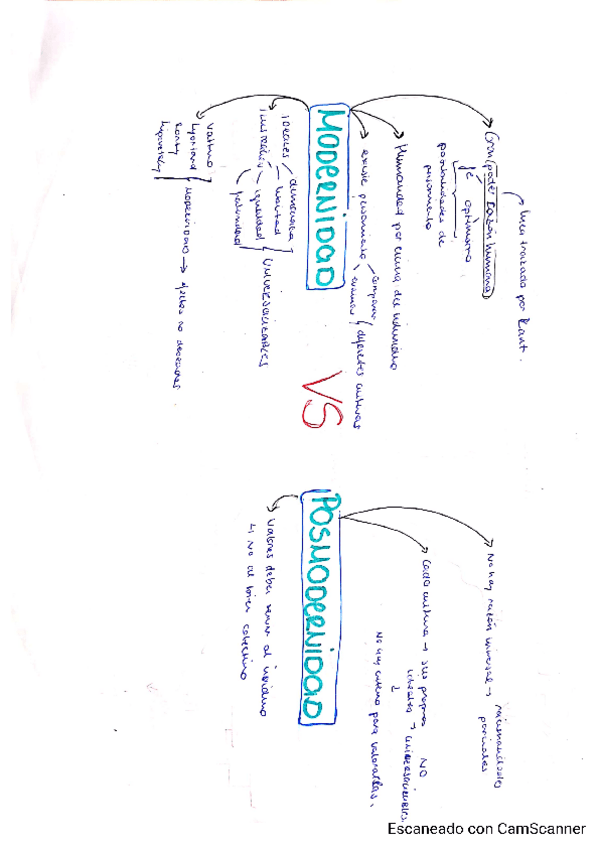 línea trazada por Kant.
Gran poder razón humana
fé
optimismo
posibilidades de
pensamiento
Humanidad por encima del individuo
existe pensamiento
comparar
evaluar
diferentes culturas
MODERNIDAD
ideales
ilustración
democracia
libertad
igualdad
fraternidad
UNIVERSALIZABLES
Vattimo
Lyotard
Rorty
Lipovetsky
MODERNIDAD → efectos no deseados
VS
POSMODERNIDAD
No hay razón universal → racionalidades
parciales
Cada cultura → sus propios
ideales → NO
universalizables.
No hay criterio para valorarlas.
Valores deben servir al individuo
↳ No al bien colectivo
Escaneado con CamScanner